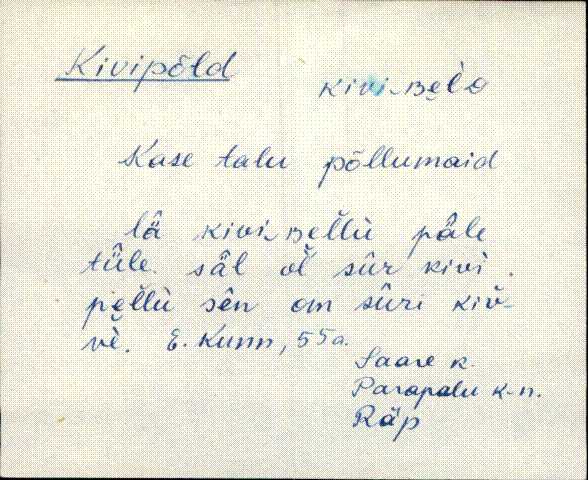 Kivipõld
kivi-ʙe̮l̀o
Kase talu põllumaid
lä̂ kivi ʙe̮l̆lù pä̂le
tü̂le. sä̂l ol̆ sûr kivì.
pe̮l̆lù sên om sûri kiv̆-
vè. E. Kunn, 55a.
Saare k.
Parapalu k-n.
Räp